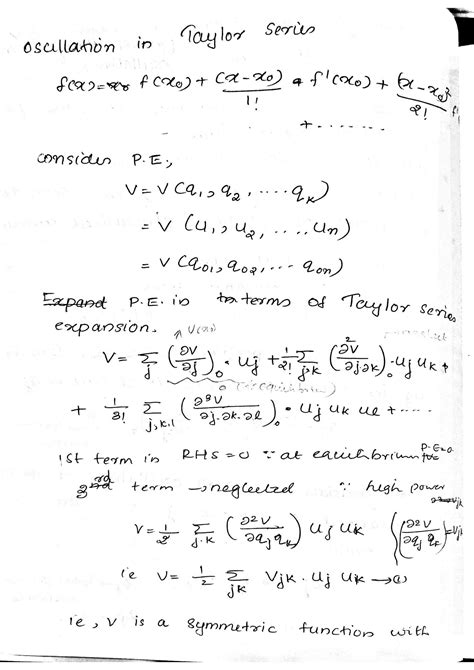 oscillation in Taylor series
f(x) = f(x₀) + (x-x₀)/1! f'(x₀) + (x-x₀)²/2! f
+ .......
consider P.E.,
V = V(q₁, q₂, .... qₖ)
= V (u₁, u₂, .... uₙ)
= V (q₀₁, q₀₂, ... q₀ₙ)
Expand P.E. in terms of Taylor series
expansion.
V = Σ_j (∂V/∂j)₀ . uj + 1/2! Σ_jk (∂²V/∂j∂k)₀ . uj uk +
+ 1/3! Σ_j,k,l (∂³V/∂j.∂k.∂l)₀ . uj uk ul + ....
1st term in RHS = 0 ∵ at equilibrium P.E=0
3rd term → neglected ∵ high power
V = 1/2 Σ_j.k (∂²V/∂qj qk) uj uk {(∂²V/∂qj qk) = Vjk
ie V = 1/2 Σ_jk Vjk . uj uk →①
ie, V is a symmetric function with